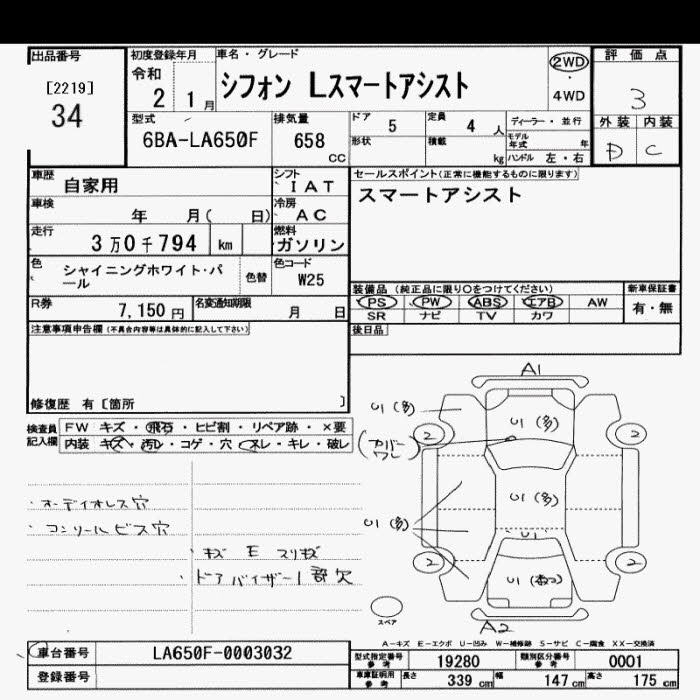 出品番号 初度登録年月 車名・グレード 評価点
[2219] 令和 シフォン Lスマートアシスト 2WD ・ 4WD 3
34 2 1月
型式 排気量 ドア 5 定員 4人 ディーラー・並行 外装 内装
6BA-LA650F 658 CC 形状 積載 kg モデル年式 年 D C
ハンドル 左・右
車歴 自家用 シフト IAT セールスポイント(正常に機能するものに限ります)
車検 年 月( 日) 冷房 AC スマートアシスト
走行 3万0千794 km 燃料 ガソリン
色 シャイニングホワイト・パール 色替 色コード W25
装備品(純正品に限り○をつけてください) 新車保証書
R券 7,150円 名変通知期限 月 日 PS PW ABS エアB AW 有・無
SR ナビ TV カワ
注意事項申告欄(不具合内容等は具体的に記入して下さい) 後日品
修復歴 有〔箇所 〕
検査員記入欄 FW キズ・飛石・ヒビ割・リペア跡・×要
内装 キズ・汚レ・コゲ・穴・スレ・キレ・破レ
A1
U1(多) U1(多)
2 2
(カバーワレ)
U1(多) U1(多)
U1
2 2
U1
A2
スペア
・オーディオレス穴
・コンソールビス穴
・キズ E スリキズ
・ドアバイザー1部欠
A-キズ E-エクボ U-凹み W-補修跡 S-サビ C-腐食 XX-交換済
車台番号 LA650F-0003032 型式指定番号 参考 19280 類別区分番号 参考 0001
登録番号 車庫証明用 参考 長さ 339cm 幅 147cm 高さ 175cm